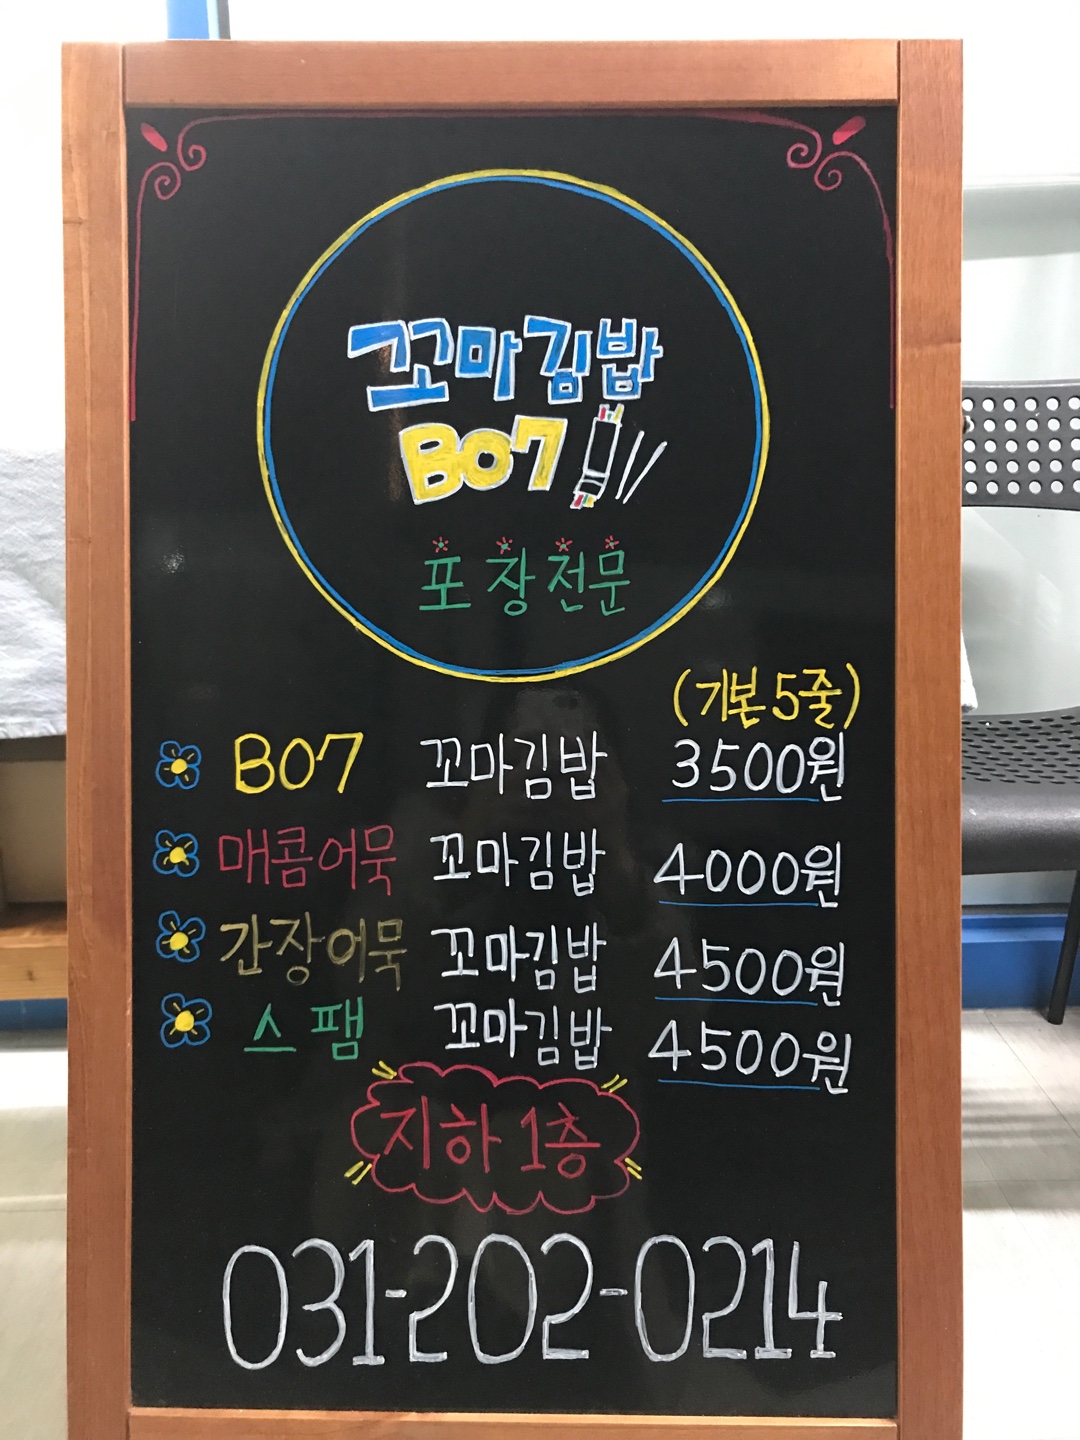 꼬마김밥
B07
포장전문
(기본 5줄)
B07 꼬마김밥 3500원
매콤어묵 꼬마김밥 4000원
간장어묵 꼬마김밥 4500원
스팸 꼬마김밥 4500원
지하 1층
031-202-0214